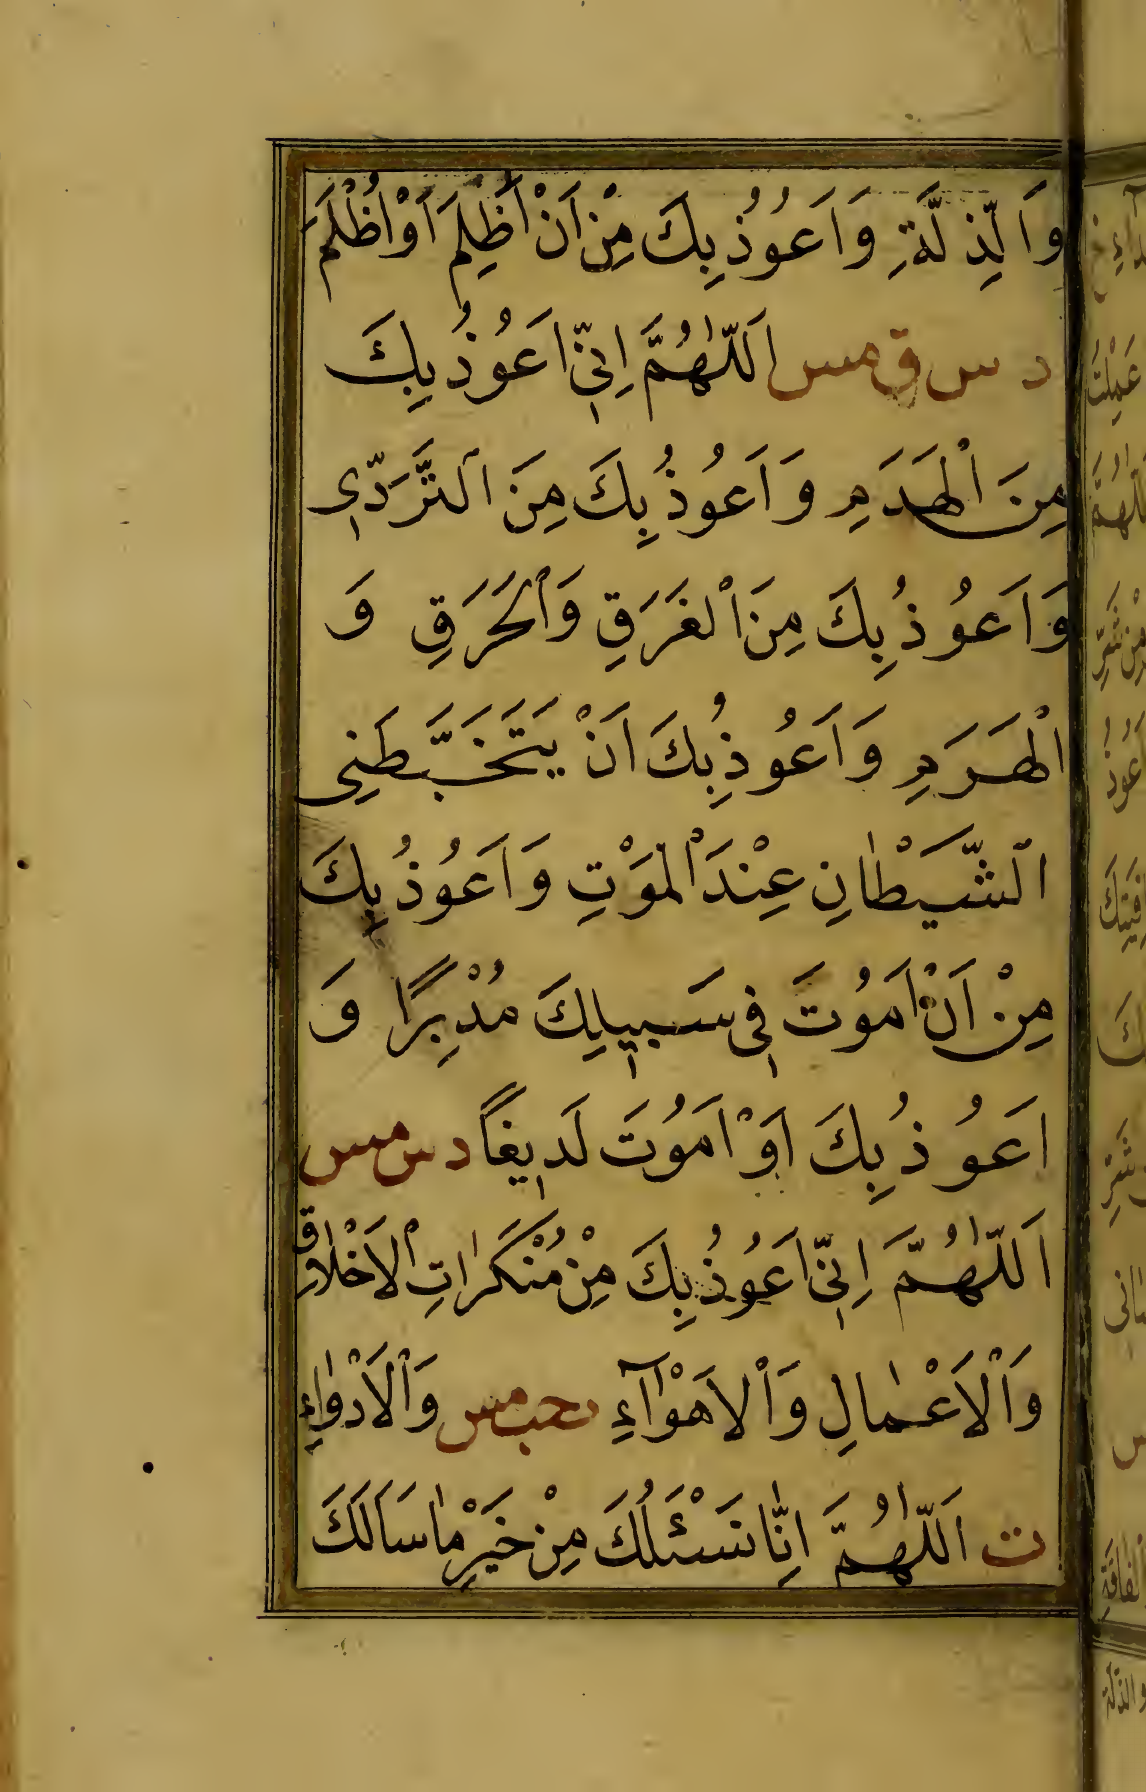 وَالذِّلَّةِ وَاَعُوُذُ بِكَ مِنْ اَنْ اَظْلِمَ اَوْ اُظْلَمَ
د س ق مس اَللّٰهُمَّ اِنّٖي اَعُوُذُ بِكَ
مِنَ الْهَدَمِ وَاَعُوُذُ بِكَ مِنَ التَّرَدّٖى
وَاَعُوُذُ بِكَ مِنَ الْغَرَقِ وَالْحَرَقِ وَ
الْهَرَمِ وَاَعُوُذُ بِكَ اَنْ يَتَخَبَّطَنِى
الشَّيْطٰانِ عِنْدَ الْمَوْتِ وَاَعُوُذُ بِكَ
مِنْ اَنْ اَمُوُتَ فٖى سَبٖيلِكَ مُدْبِرًا وَ
اَعُوُذُ بِكَ اَوْ اَمُوُتَ لَدٖيغًا د س مس
اَللّٰهُمَّ اِنّٖي اَعُوُذُ بِكَ مِنْ مُنْكَرٰاتِ الْاَخْلٰاقِ
وَالْاَعْمٰالِ وَالْاَهْوٰآءِ ت حب مس وَالْاَدْوٰاءِ
ت اَللّٰهُمَّ اِنّٰا نَسْئَلُكَ مِنْ خَيْرِ مٰا سَاَلَكَ